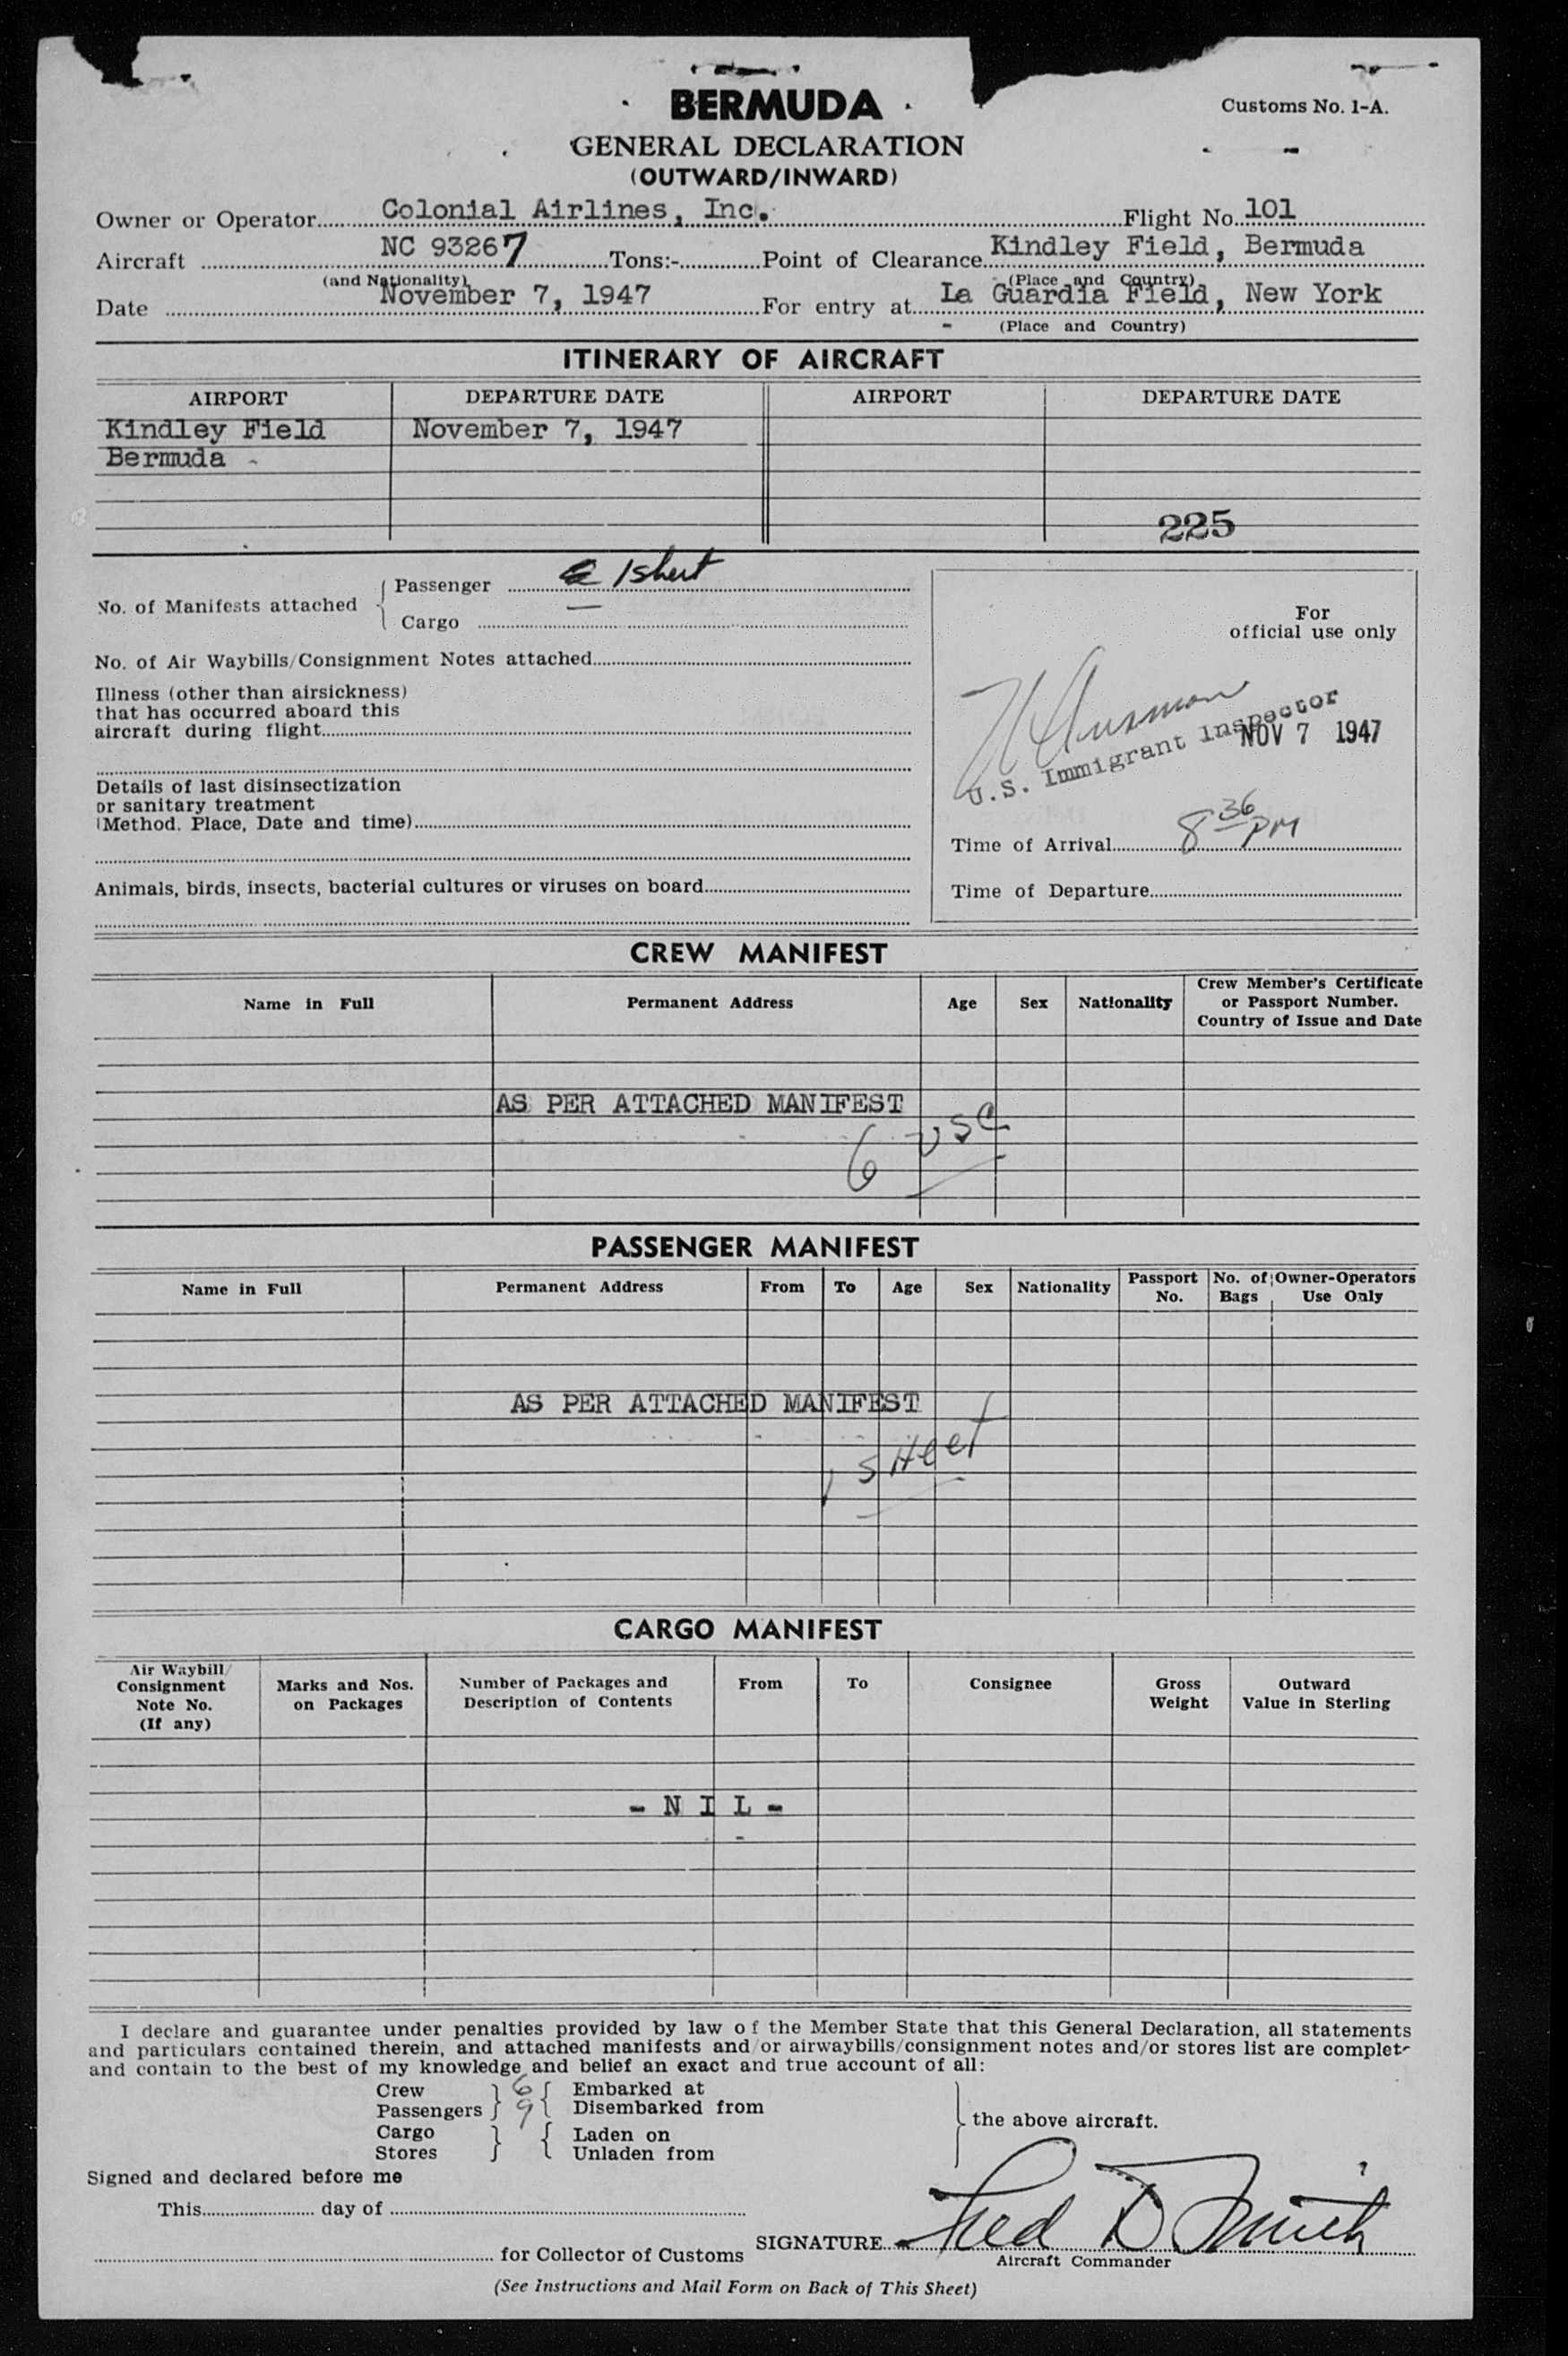 BERMUDA
Customs No. 1-A.
GENERAL DECLARATION
(OUTWARD/INWARD)
Owner or Operator Colonial Airlines, Inc. Flight No. 101
Aircraft NC 93267 Tons:- Point of Clearance Kindley Field, Bermuda
(and Nationality) (Place and Country)
Date November 7, 1947 For entry at La Guardia Field, New York
(Place and Country)
ITINERARY OF AIRCRAFT
AIRPORT DEPARTURE DATE AIRPORT DEPARTURE DATE
Kindley Field November 7, 1947
Bermuda
225
No. of Manifests attached
Passenger 1 sheet
Cargo
No. of Air Waybills/Consignment Notes attached
Illness (other than airsickness)
that has occurred aboard this
aircraft during flight
Details of last disinsectization
or sanitary treatment
(Method. Place, Date and time)
Animals, birds, insects, bacterial cultures or viruses on board
For
official use only
U.S. Immigrant Inspector
NOV 7 1947
Time of Arrival 8 36 PM
Time of Departure
CREW MANIFEST
Name in Full Permanent Address Age Sex Nationality Crew Member's Certificate
or Passport Number.
Country of Issue and Date
AS PER ATTACHED MANIFEST
6 USC
PASSENGER MANIFEST
Name in Full Permanent Address From To Age Sex Nationality Passport No. No. of Bags Owner-Operators Use Only
AS PER ATTACHED MANIFEST
1 SHeet
CARGO MANIFEST
Air Waybill/
Consignment
Note No.
(If any)
Marks and Nos.
on Packages
Number of Packages and
Description of Contents
From To Consignee
Gross
Weight
Outward
Value in Sterling
- N I L -
I declare and guarantee under penalties provided by law of the Member State that this General Declaration, all statements
and particulars contained therein, and attached manifests and/or airwaybills/consignment notes and/or stores list are complet
and contain to the best of my knowledge and belief an exact and true account of all:
Crew 6 Embarked at
Passengers 9 Disembarked from
the above aircraft.
Cargo Laden on
Stores Unladen from
Signed and declared before me
This day of
SIGNATURE Fred D Smith
for Collector of Customs
Aircraft Commander
(See Instructions and Mail Form on Back of This Sheet)